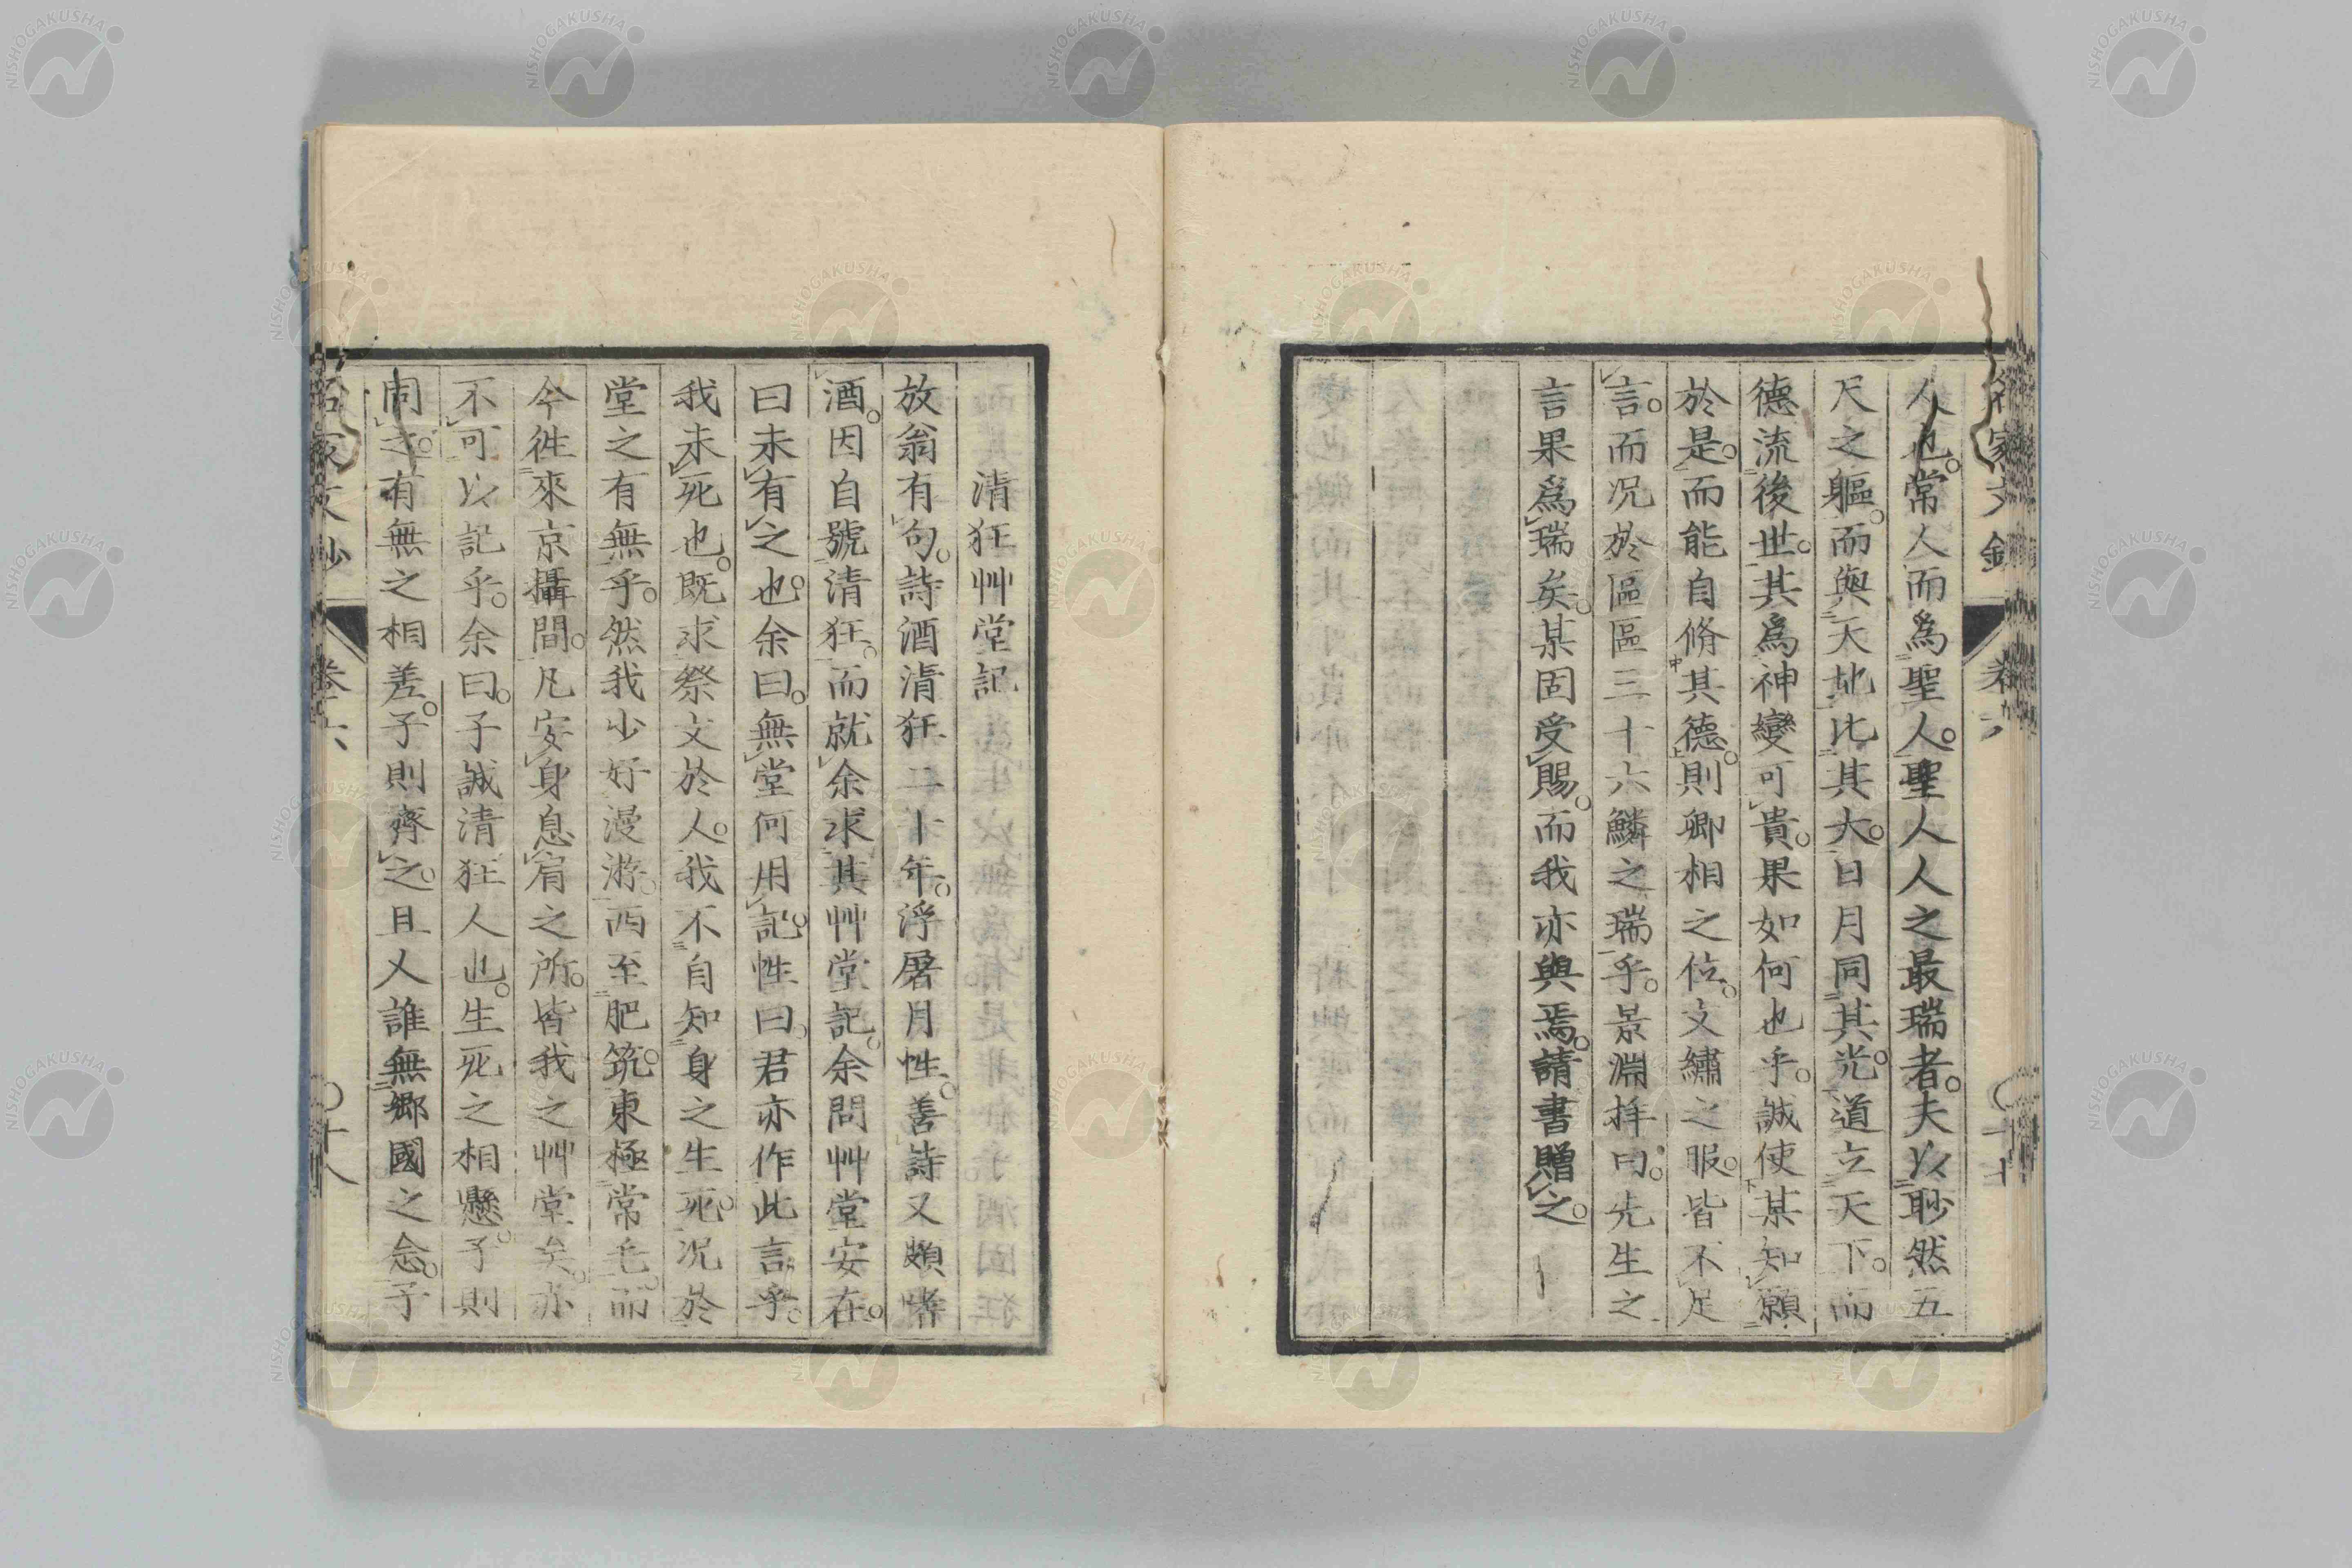 人也。常人而爲聖人。聖人人之最瑞者。夫以眇然五
尺之軀。而與天地比其大。日月同其光。道立天下。而
德流後世。其爲神變可貴。果如何也乎。誠使某知願
於是。而能自脩其德。則卿相之位。文繡之服。皆不足
言。而況於區區三十六鱗之瑞乎。景淵拜曰。先生之
言果爲瑞矣。某固受賜。而我亦與焉。請書贈之。
清狂艸堂記
放翁有句。詩酒清狂二十年。浮屠月性。善詩又頗嗜
酒。因自號清狂。而就余求其艸堂記。余問艸堂安在。
曰未有之也。余曰。無堂何用記。性曰。君亦作此言乎。
我未死也。既求祭文於人。我不自知身之生死。況於
堂之有無乎。然我少好漫游。西至肥筑。東極常毛。而
今徃來京攝間。凡安身息肩之所。皆我之艸堂矣。亦
不可以記乎。余曰。子誠清狂人也。生死之相懸。子則
同之。有無之相差。子則齊之。且人誰無鄉國之念。子
卷六
十八
NISHOGAKUSHA